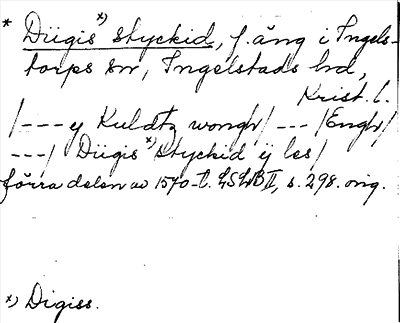 * Diigis *) styckid, f. äng i Ingels-
torps sn, Ingelstads hd,
Krist. l.
/--- y Kuldtz wongh/ --- /Engh/
---/ Diigis *) styckid ÿ les/
förra delen av 1570-t. LSLB II, s. 298. orig.
*) Digiss.